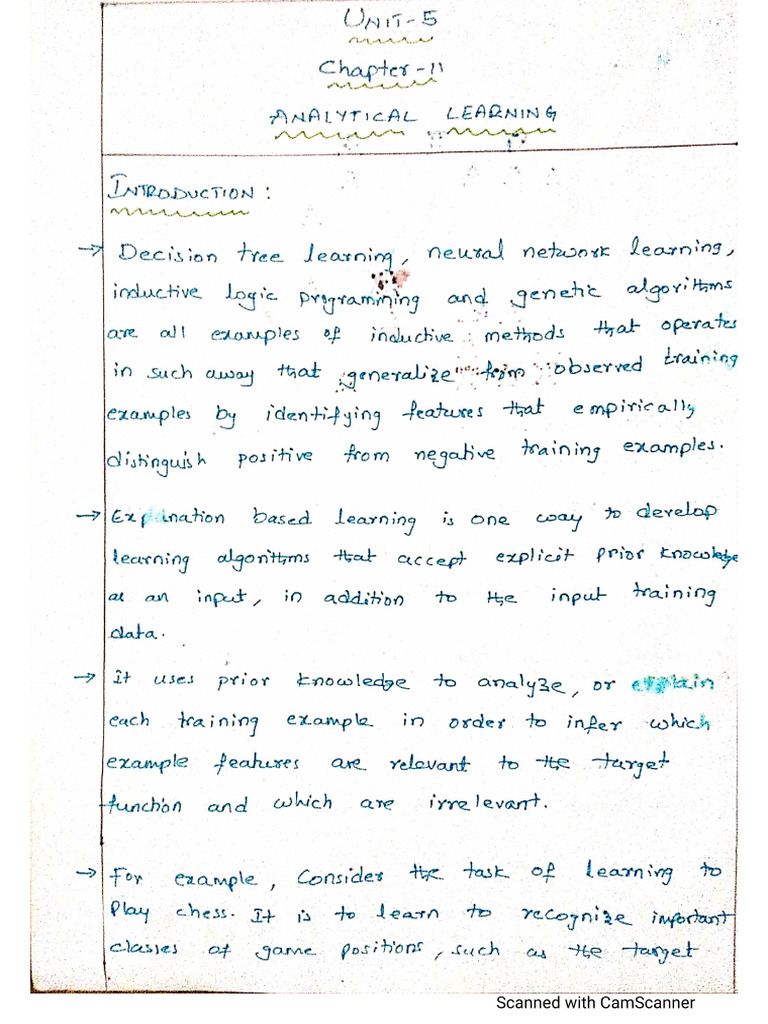 UNIT-5
Chapter-11
ANALYTICAL LEARNING
INTRODUCTION:
→ Decision tree learning, neural network learning,
inductive logic programining and genetic algorithms
are all examples of inductive methods that operates
in such away that generalize from observed training
examples by identifying features that empirically
distinguish positive from negative training examples.
→ Explanation based learning is one way to develop
learning algorithms that accept explicit prior knowledge
as an input, in addition to the input training
data.
→ It uses prior knowledge to analyze, or explain
each training example in order to infer which
example features are relevant to the target
function and which are irrelevant.
→ For example, Consider the task of learning to
Play chess. It is to learn to recognize important
classes of game positions, such as the target
Scanned with CamScanner